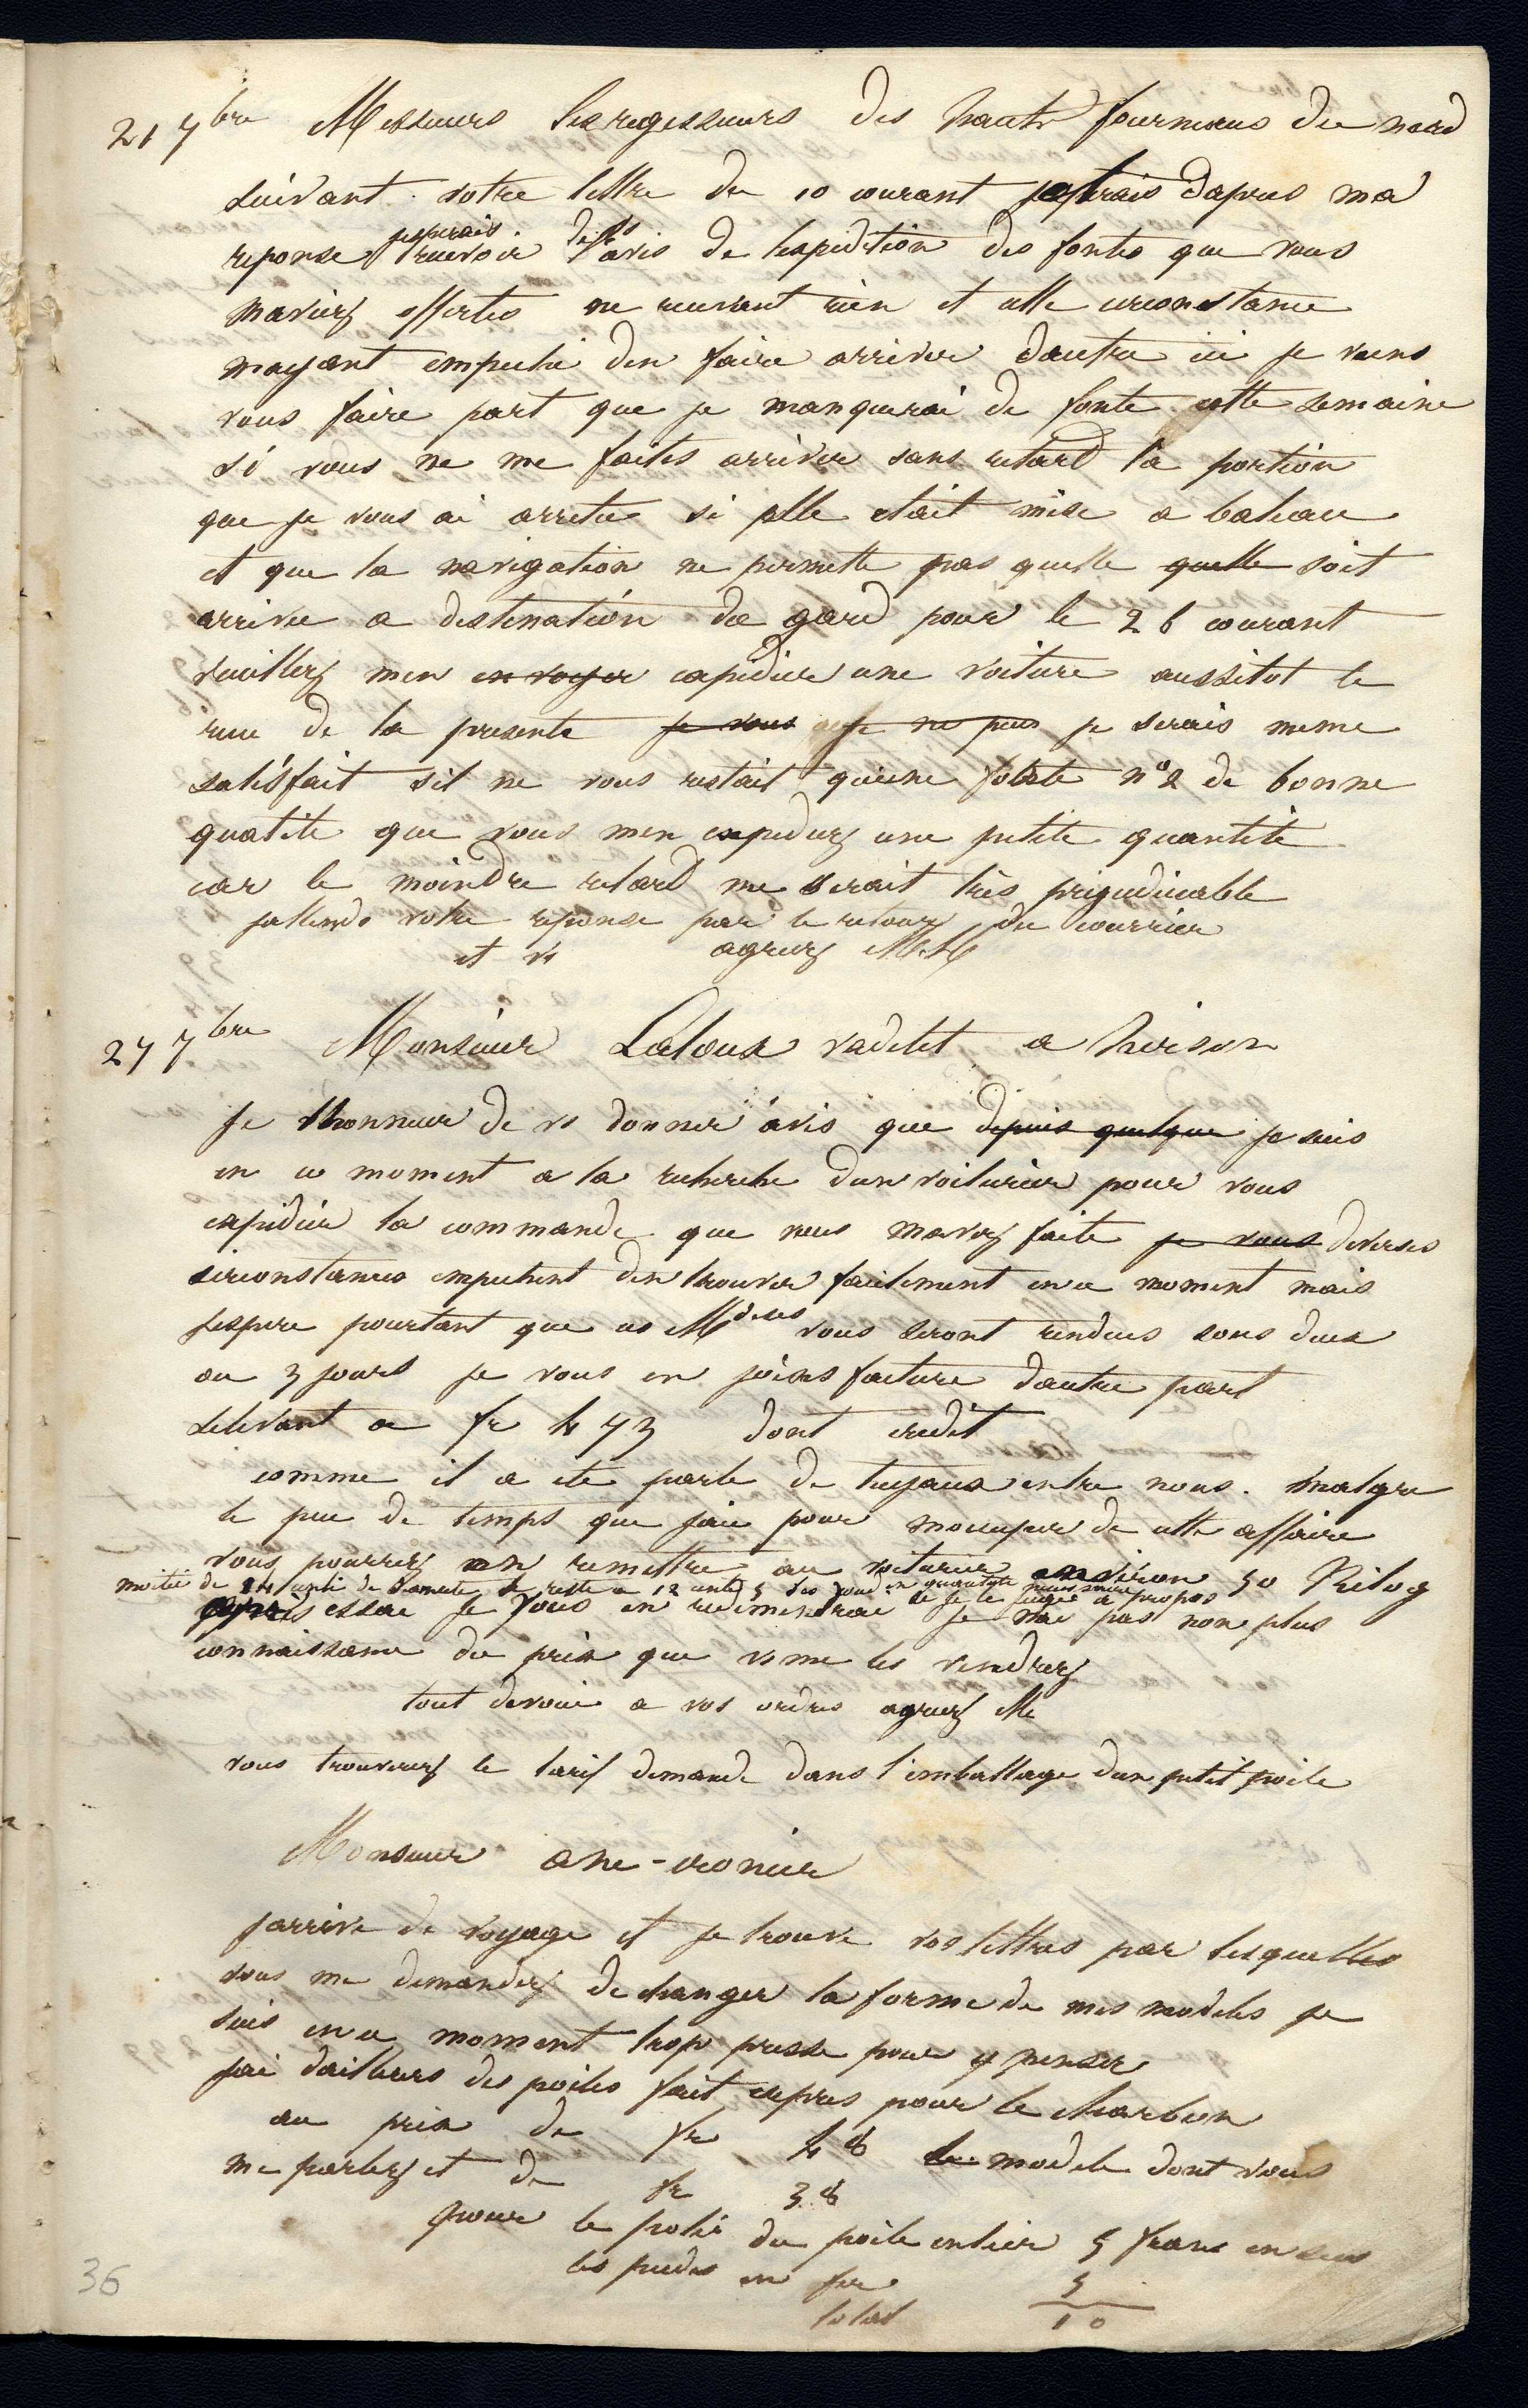 21 7bre Messieurs les regisseurs des hauts fourneaux du nord
suivant votre lettre du 10 courant jesperais dapres ma
reponse jesperais recevoir avis de lexpedition des fontes que vous
maviez offertes ne recevant rien et cette circonstance
mayant empeché den faire arriver dautre ici je viens
vous faire part que je manquerai de fonte cette semaine
si vous ne me faites arriver sans retard la portion
que je vous ai arretee si elle etait mise a bateau
et que la navigation ne permette pas quelle quelle soit
arrivee a destination de gard pour le 26 courant
veuillez men envoyer expedier une voiture aussitot le
recu de la presente je vous je ne puis je serais meme
satisfait sil ne vous restait qu'une fonte n° 2 de bonne
qualite que vous men expediez une petite quantité
car le moindre retard me serait très prejudiciable
jattends votre reponse par le retour du courrier
et vs agreez MM
27 7bre Monsieur Laloux vadelet a hirson
Je lhonneur de vs donner avis que depuis quelque je suis
en ce moment a la recherche dun voiturier pour vous
expedier la commande que vous mavez faite je vous diverses
circonstances empechent den trouver facilement en ce moment mais
jespere pourtant que ces Mdises vous seront rendues sous deux
ou 3 jours je vous en joins facture dautre part
selevant a fr 473 dont credit
comme il a ete parle de tuyaux entre nous. malgre
le peu de temps que jaie pour moccuper de cette affaire
vous pourrez en remettre au voiturier environ 50 Kilog
moitié de 14 centi de diametre le reste a 12 centi je le juge a propos
apres essai je vous en redemanderai je nai pas non plus
connaissance du prix que vs me les vendrez
tout devoue a vos ordres agreez Mr
vous trouverez le tarif demande dans l'emballage dun petit poile
Monsieur ane-cronier
jarrive de voyage et je trouve vos lettres par lesquelles
vous me demandez de changer la forme de mes modeles je
suis en ce moment trop presse pour y penser
jai dailleurs des poiles fait expres pour le charbon
au prix de fr 48 le modele dont vous
me parlez et de fr 38
pour le poli du poile entier 5 franc en sus
les pieds en fer 5
total 10
36